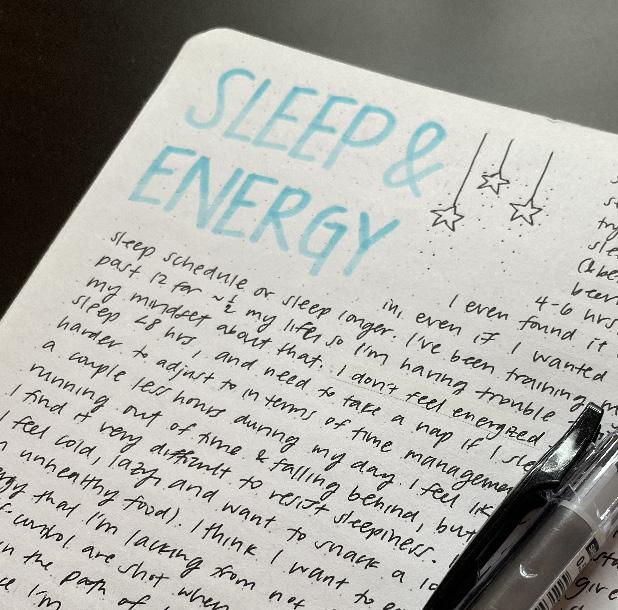 SLEEP &
ENERGY
I even found it
in, even if I wanted
sleep schedule or sleep longer. I've been training
past 12 for ~½ my life, so I'm having trouble
my mindset about that. I don't feel energized
sleep <8 hrs, and need to take a nap if I
harder to adjust to in terms of time
a couple less hours during my day. I feel
running out of time & falling behind, but
I find it very difficult to resist sleepiness.
I feel cold, lazy, and want to snack a
unhealthy food). I think I want to
that I'm lacking from not
are shot when
in the path of
I'm
4-6 hrs